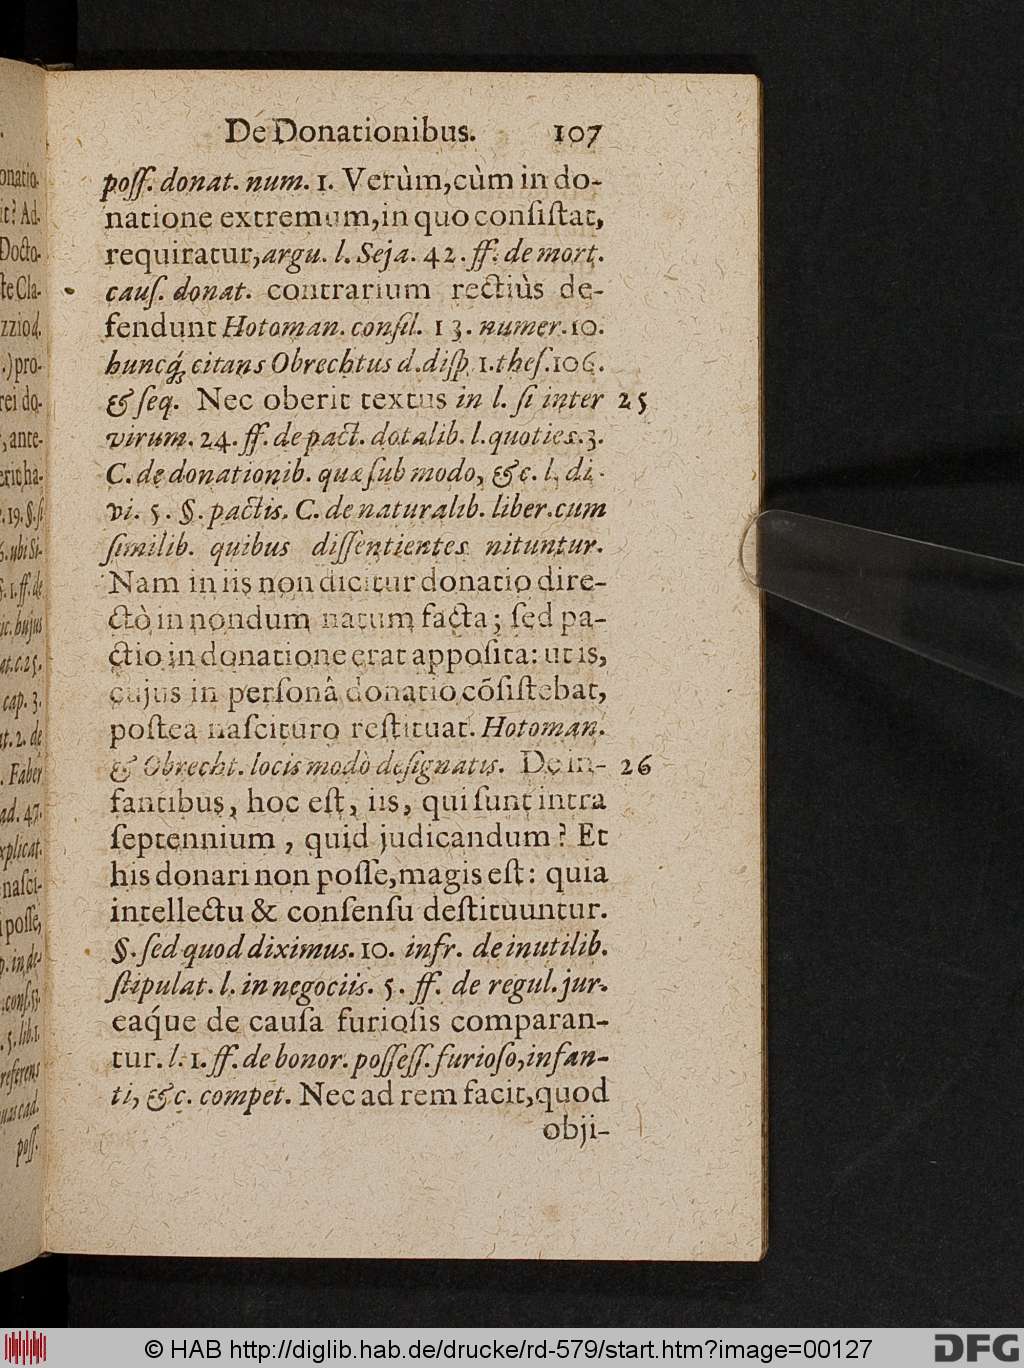 De Donationibus. 107
poſſ. donat. num. 1. Verùm, cùm in do-
natione extremum, in quo conſiſtat,
requiratur, argu. l. Seja. 42. ff. de mort.
cauſ. donat. contrarium rectiùs de-
fendunt Hotoman. conſil. 13. numer. 10.
huncq́; citans Obrechtus d. diſp. 1. theſ. 106.
& ſeq. Nec oberit textus in l. ſi inter 25
virum. 24. ff. de pact. dotalib. l. quoties. 3.
C. de donationib. quæ ſub modo, &c. l. di-
vi. 5. §. pactis. C. de naturalib. liber. cum
ſimilib. quibus diſſentientes nituntur.
Nam in iis non dicitur donatio dire-
ctò in nondum natum facta; ſed pa-
ctio in donatione erat appoſita: ut is,
cujus in perſonâ donatio cõſiſtebat,
poſtea naſcituro reſtituat. Hotoman.
& Obrecht. locis modò deſignatis. De in- 26
fantibus, hoc eſt, iis, qui ſunt intra
ſeptennium, quid judicandum? Et
his donari non poſſe, magis eſt: quia
intellectu & conſenſu deſtituuntur.
§. ſed quod diximus. 10. infr. de inutilib.
ſtipulat. l. in negociis. 5. ff. de regul. jur.
eaq́ue de cauſa furioſis comparan-
tur. l. 1. ff. de bonor. poſſeſſ. furioſo, infan-
ti, &c. compet. Nec ad rem facit, quod
obji-
onatio-
it? Ad-
Docto-
ſte Cla-
zzio d.
.) pro-
rei do-
, ante-
erit ha-
. 19. §. ſi
6. ubi Si-
§. 1. ff. de
ic. hujus
at. c. 25.
cap. 3.
at. 2. de
. Faber
ad. 47.
xplicat.
naſci-
i poſſe,
p. in de-
. conſ. 53.
. 5. lib. 1.
referens
uas cad.
poſſ.
© HAB http://diglib.hab.de/drucke/rd-579/start.htm?image=00127
DFG